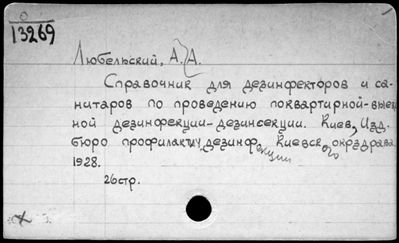 0
13269
Любельский, А. А.
Справочник для дезинфекторов и са-
нитаров по проведению поквартирной-выезд
ной дезинфекции-дезинсекции. Киев, Изд.
бюро профилактич. дезинфекции Киевского окрздрава
1928.
26стр.